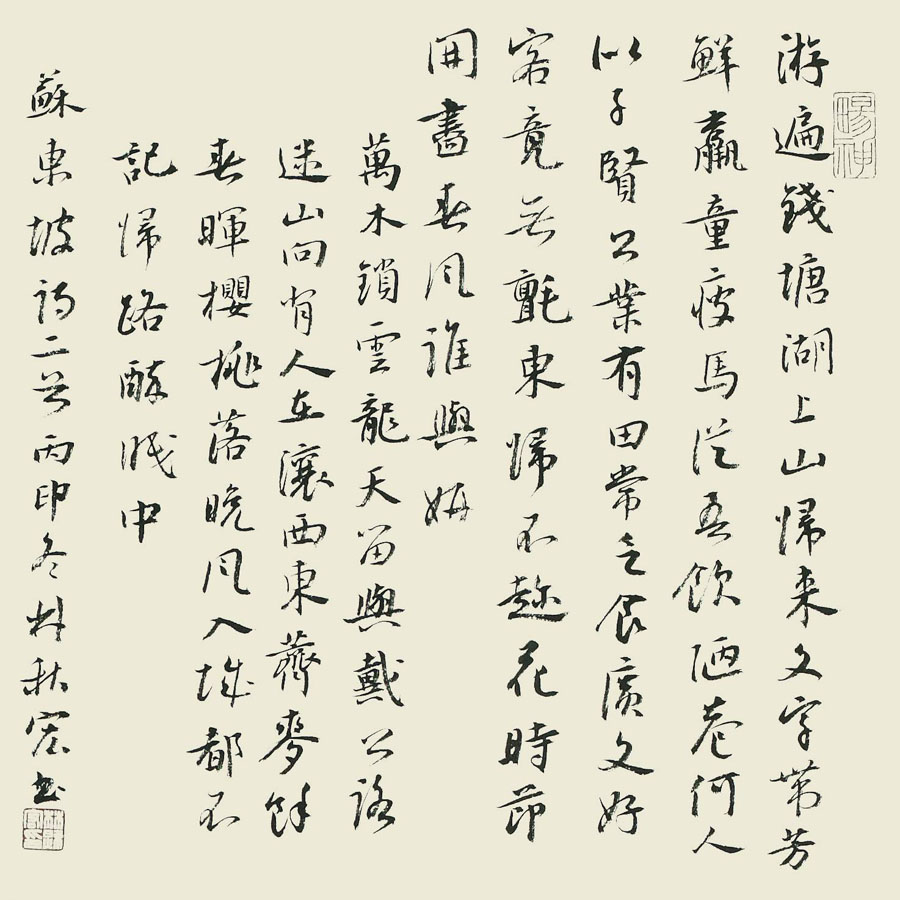 游遍錢塘湖上山歸來文字帶芳
鮮羸童疲馬從吾飲陋巷何人
似子賢公業有田常乞食廣文好
客竟無氈東歸不趁花時節
開盡春風誰與妍
萬木鎖雲龍天留與戴公路
迷山向背人在瀼西東薺麥餘
春暉櫻桃落晚風入城都不
記歸路醉眠中
蘇東坡詩二首丙申冬林秋宏書